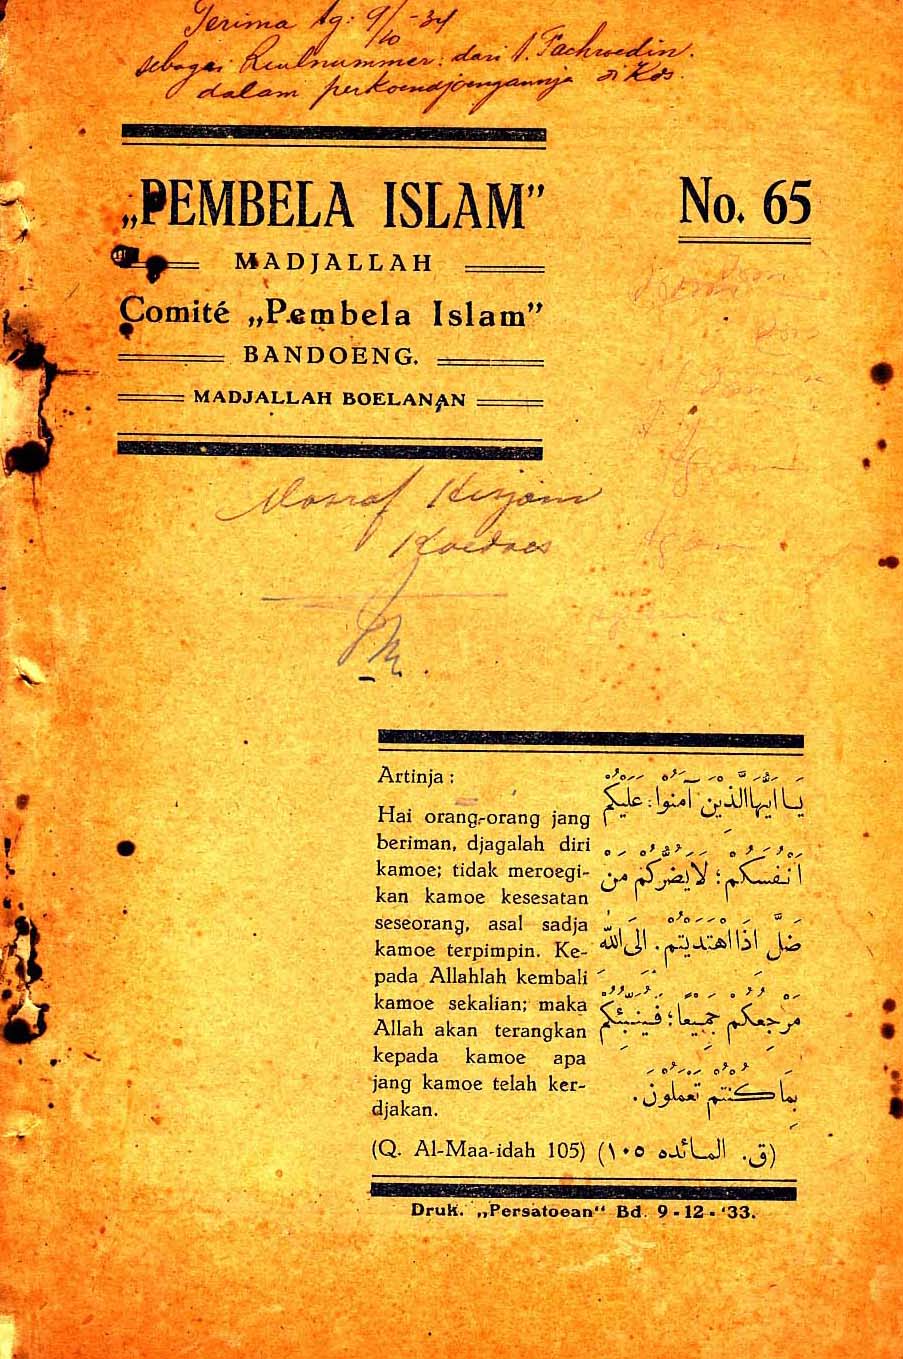 Terima tg: 9/10-34
sebagai Ruilnummer: dari t. Fachroedin.
dalam perkoendjoengannja di Kds.
„PEMBELA ISLAM”
No. 65
MADJALLAH
Comité „Pembela Islam”
BANDOENG.
MADJALLAH BOELANAN
Koedoes
Artinja :
Hai orang-orang jang
beriman, djagalah diri
kamoe; tidak meroegi-
kan kamoe kesesatan
seseorang, asal sadja
kamoe terpimpin. Ke-
pada Allahlah kembali
kamoe sekalian; maka
Allah akan terangkan
kepada kamoe apa
jang kamoe telah ker-
djakan.
(Q. Al-Maa-idah 105)
يَا اَيُّهَا الَّذِيْنَ آمَنُوْا : عَلَيْكُمْ
اَنْفُسَكُمْ : لَا يَضُرُّكُمْ مَنْ
ضَلَّ اِذَا اهْتَدَيْتُمْ . اِلَى اللّٰهِ
مَرْجِعُكُمْ جَمِيْعًا ؛ فَيُنَبِّئُكُمْ
بِمَا كُنْتُمْ تَعْمَلُوْنَ .
(ق. المائده ١٠٥)
Druk. „Persatoean“ Bd. 9-12-'33.